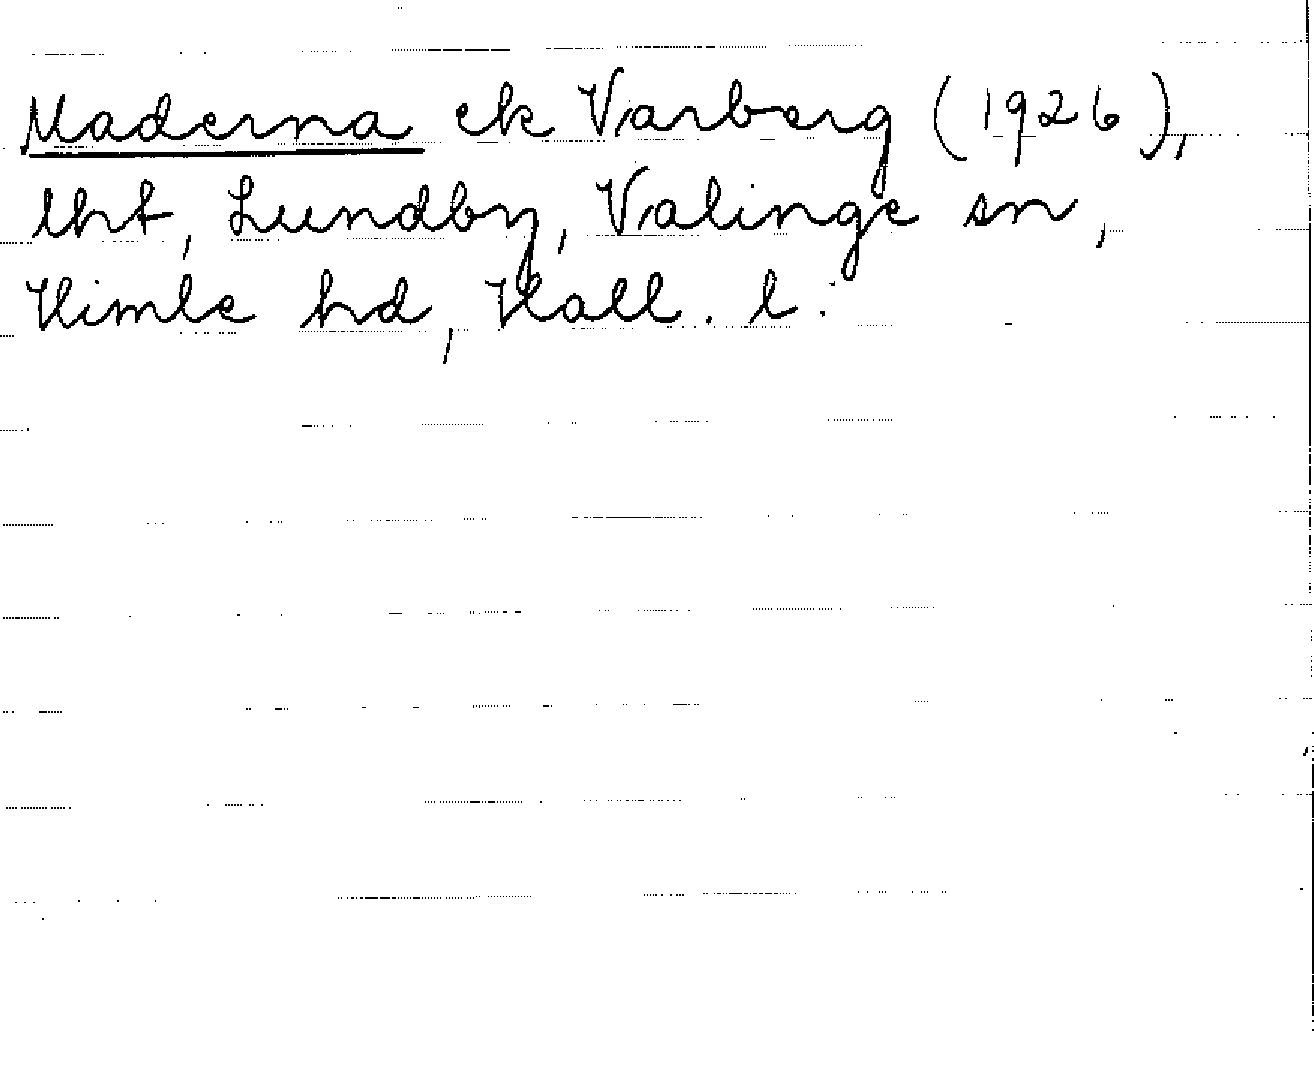 Maderna ek Varberg (1926),
lht, Lundby, Valinge sn,
Himle hd, Hall. l.